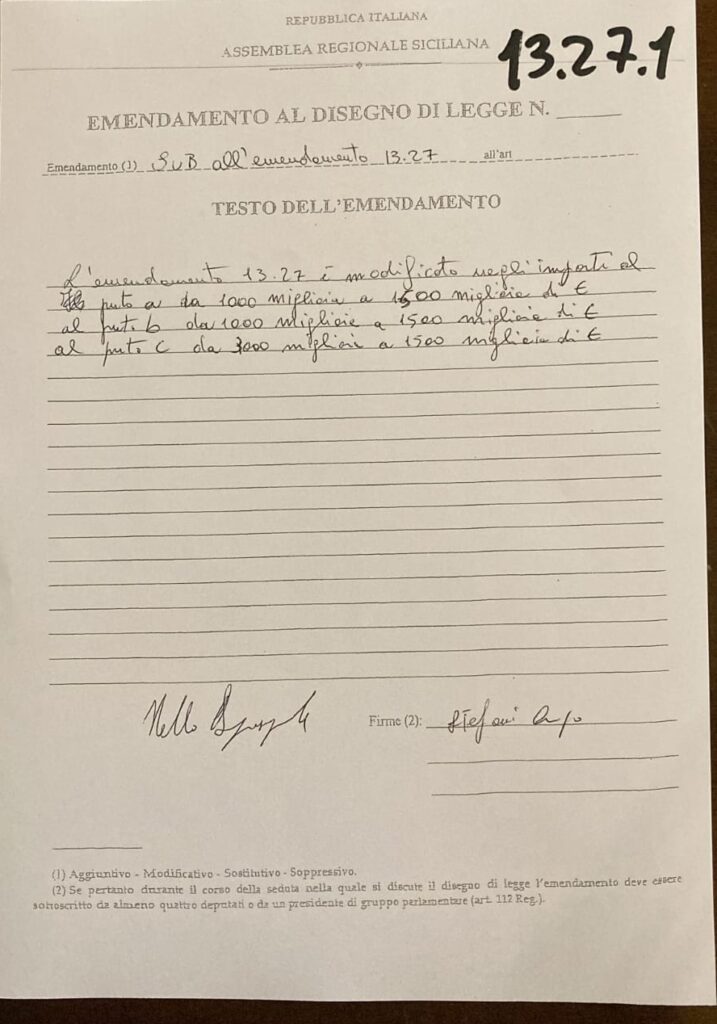 REPUBBLICA ITALIANA
ASSEMBLEA REGIONALE SICILIANA
13.27.1
EMENDAMENTO AL DISEGNO DI LEGGE N. ______
Emendamento (1) SUB all'emendamento 13.27 all'art
TESTO DELL'EMENDAMENTO
L'emendamento 13.27 è modificato negli importi al
puto a da 1000 migliaia a 1500 migliaia di €
al puto b da 1000 migliaia a 1500 migliaia di €
al puto c da 3000 migliaia a 1500 migliaia di €
Nello
Firme (2): Stefani
(1) Aggiuntivo - Modificativo - Sostitutivo - Soppressivo.
(2) Se pertanto durante il corso della seduta nella quale si discute il disegno di legge l'emendamento deve essere
sottoscritto da almeno quattro deputati o da un presidente di gruppo parlamentare (art. 112 Reg.).